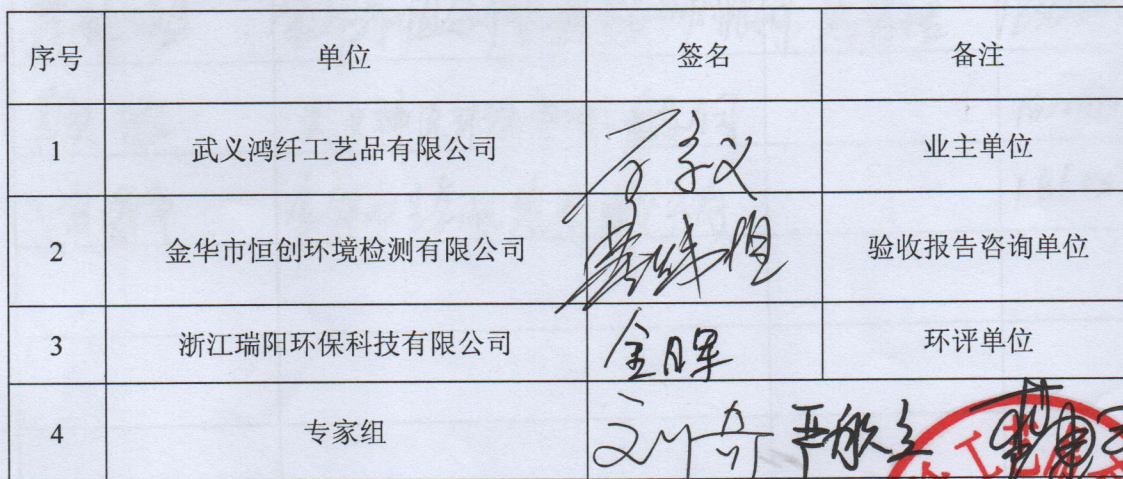 序号 单位 签名 备注
1 武义鸿纤工艺品有限公司 业主单位
2 金华市恒创环境检测有限公司 验收报告咨询单位
3 浙江瑞阳环保科技有限公司 金晖 环评单位
4 专家组
工艺